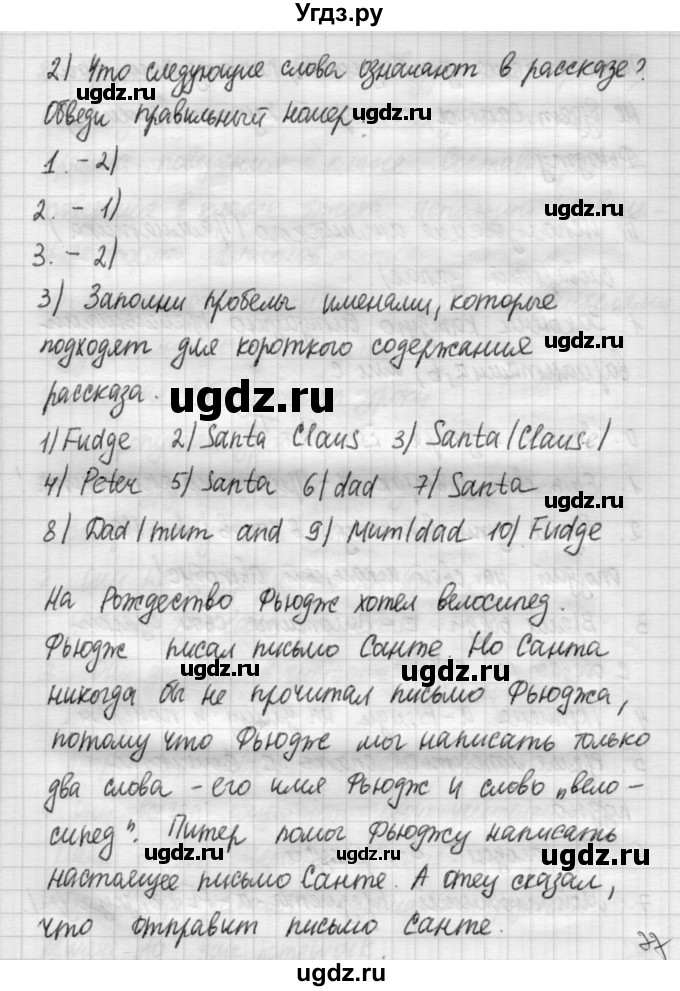 Угдз.ру
2) Что следующие слова означают в рассказе?
Обведи правильный номер.
ugdz.ru ugdz.ru
1. - 2)
2. - 1)
ugdz.ru
3. - 2)
3) Заполни пробелы именами, которые
подходят для короткого содержания
ugdz.ru
рассказа.
ugdz.ru
1) Fudge 2) Santa Claus 3) Santa (Claus)
4) Peter 5) Santa 6) dad 7) Santa
ugdz.ru ugdz.ru
8) Dad/mum and 9) Mum/dad 10) Fudge
На Рождество Фьюдж хотел велосипед.
Фьюдж писал письмо Санте. Но Санта
ugdz.ru ugdz.ru
никогда бы не прочитал письмо Фьюджа,
потому что Фьюдж мог написать только
два слова - его имя Фьюдж и слово „вело-
сипед". Питер помог Фьюджу написать
ugdz.ru ugdz.ru
настоящее письмо Санте. А отец сказал,
что отправит письмо Санте.
37
ugdz.ru